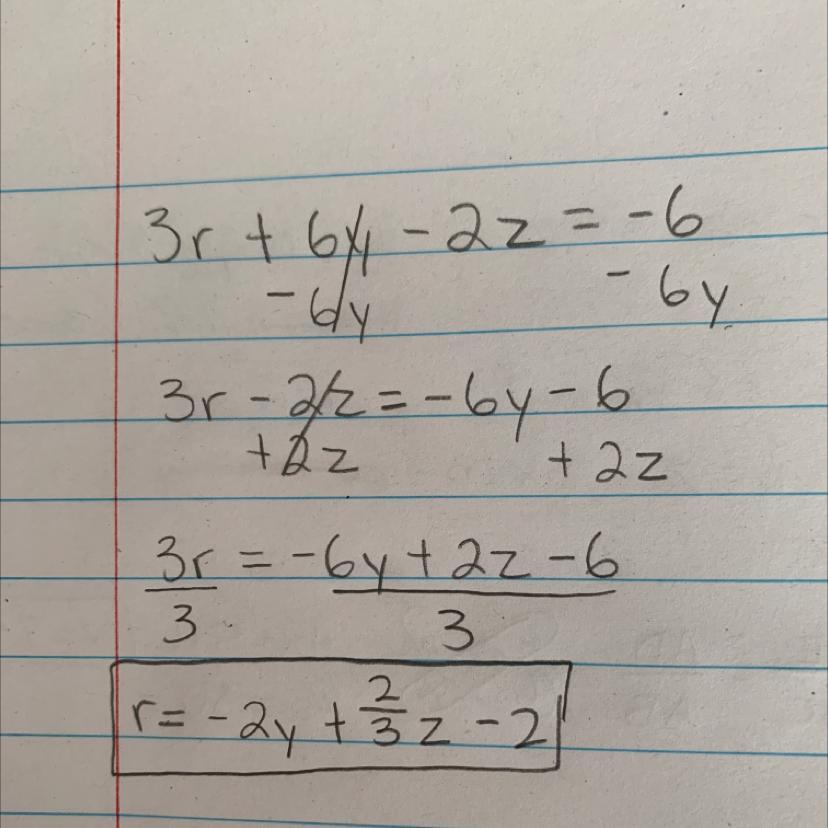 3r + 6y - 2z = -6
- 6y - 6y
3r - 2z = -6y - 6
+2z + 2z
3r = -6y + 2z - 6
3 3
r = -2y + 2/3 z - 2